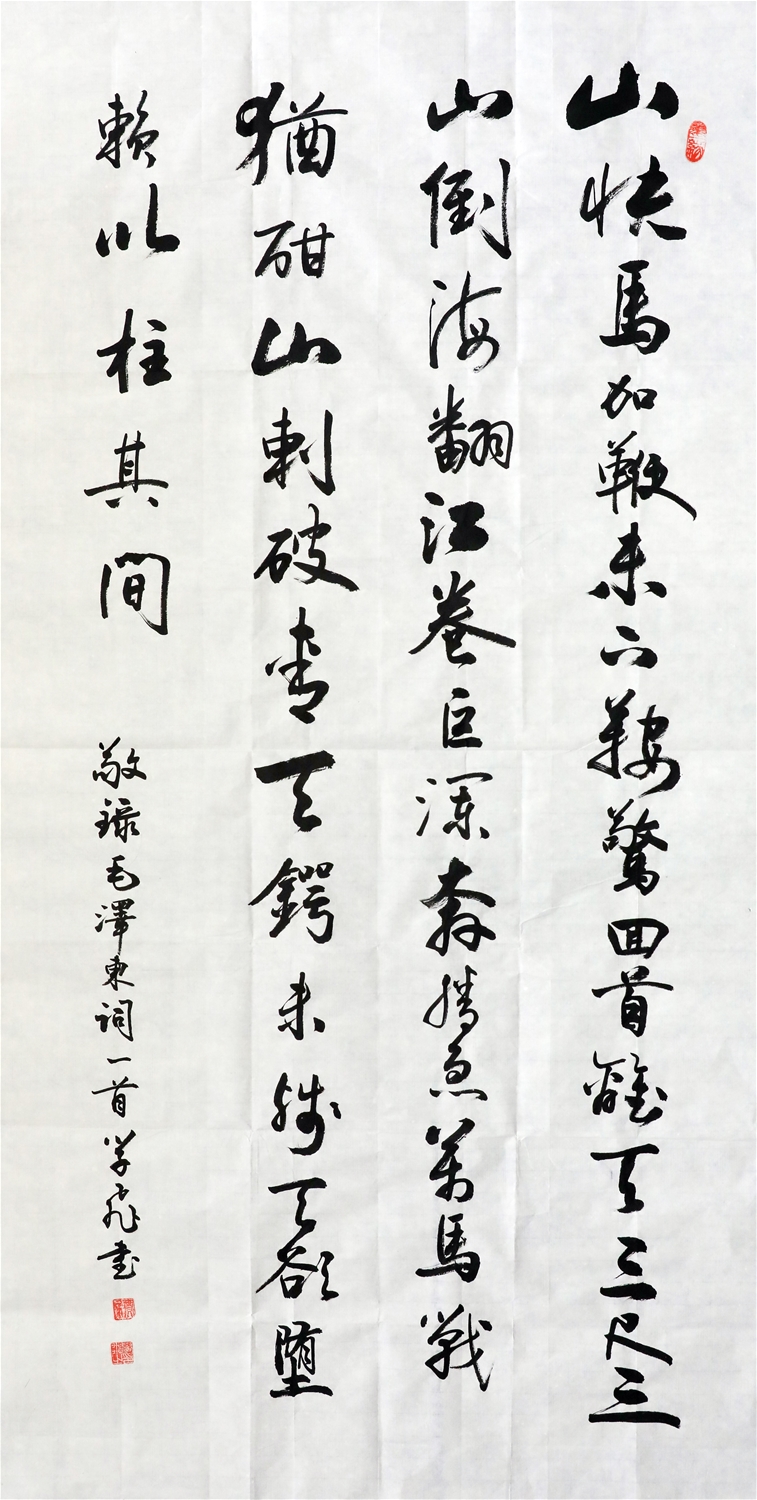 山快馬加鞭未下鞍驚回首離天三尺三
山倒海翻江卷巨瀾奔騰急萬馬戰
猶酣山刺破青天鍔未殘天欲墮
賴以柱其間
敬錄毛澤東詞一首 学飛書